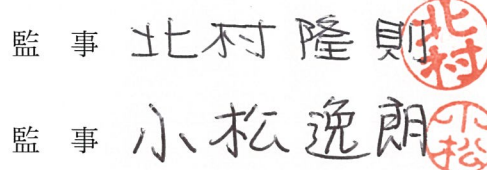 監 事 北村隆則 北村
監 事 小松逸朗 小松